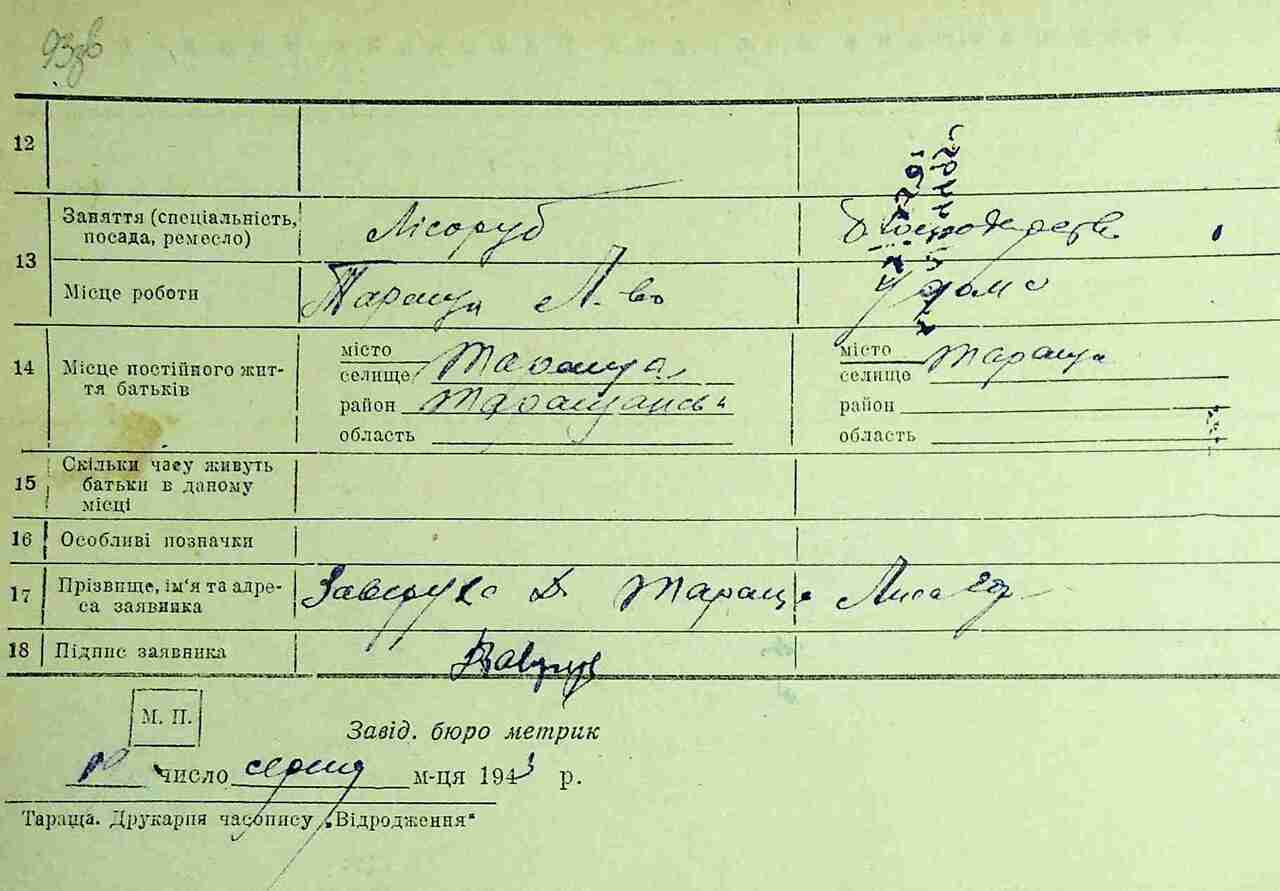 93зв
12
13 Заняття (спеціальність, посада, ремесло) Лісоруб Господарств
Місце роботи Тараща Л-во дома
14 Місце постійного життя батьків
місто Тараща місто Тараща
селище селище
район Таращанськ район
область область
15 Скільки часу живуть
батьки в даному
місці
16 Особливі позначки
17 Прізвище, ім'я та адре-
са заявника Заверуха Тараща Лиса
18 Підпис заявника
М. П.
Завід. бюро метрик
10 число серпня м-ця 1943 р.
Тараща. Друкарня часопису „Відродження“